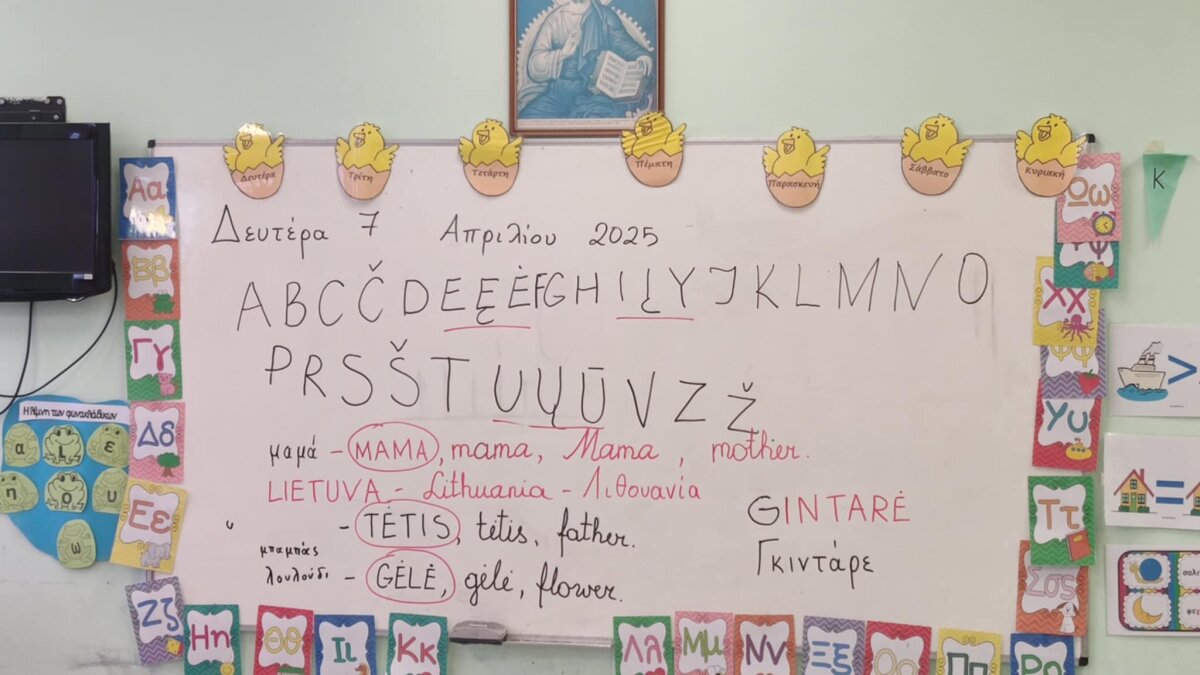 Δευτέρα Τρίτη Τετάρτη Πέμπτη Παρασκευή Σάββατο Κυριακή
Δευτέρα 7 Απριλίου 2025
A B C Č D E Ę Ė F G H I Į Y J K L M N O
P R S Š T U Ų Ū V Z Ž
μαμά - MAMA, mama, Mama, mother.
LIETUVA - Lithuania - Λιθουανία
μπαμπάς - TĖTIS, tėtis, father.
λουλούδι - GĖLĖ, gėlė, flower.
GINTARĖ
Γκιντάρε
Αα
Ββ
Γγ
Δδ
Εε
Ζζ
Ηη
Θθ
Ιι
Κκ
Λλ
Μμ
Νν
Ξξ
Οο
Ππ
Ρρ
Σσς
Ττ
Υυ
Χχ
Ωω
Η λίμνη των φωνηεντών
α ι ε
η ο υ
ω
Κ
>
=